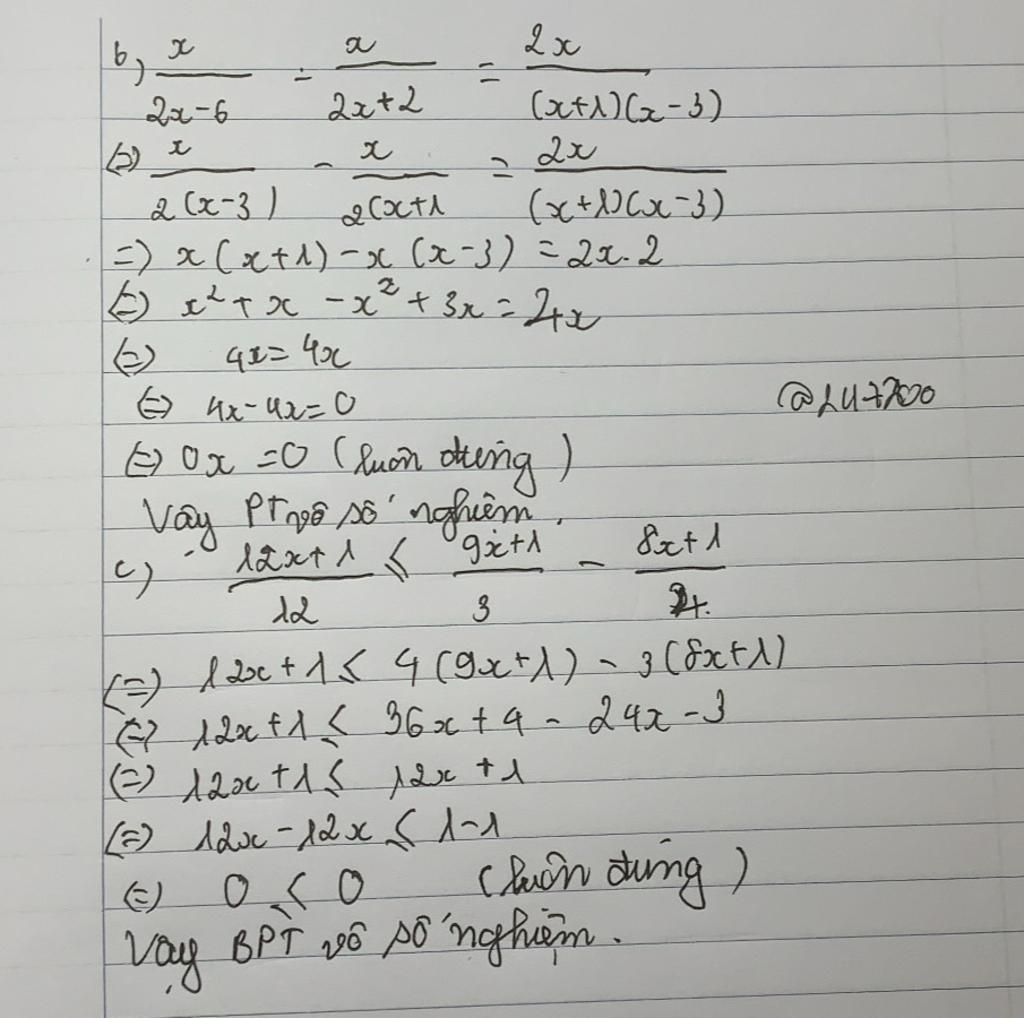 b) x/(2x-6) - x/(2x+2) = 2x/((x+1)(x-3))
(=) x/(2(x-3)) - x/(2(x+1) = 2x/((x+1)(x-3))
=) x(x+1) - x(x-3) = 2x.2
(=) x² + x - x² + 3x = 4x
(=) 4x = 4x
(=) 4x - 4x = 0
@247200
(=) 0x = 0 (luôn đúng)
Vậy PT vô số nghiệm.
c) (12x+1)/12 ≤ (9x+1)/3 - (8x+1)/4
(=) 12x + 1 ≤ 4(9x+1) - 3(8x+1)
(=) 12x + 1 ≤ 36x + 4 - 24x - 3
(=) 12x + 1 ≤ 12x + 1
(=) 12x - 12x ≤ 1 - 1
(=) 0 ≤ 0 (luôn đúng)
Vậy BPT vô số nghiệm.